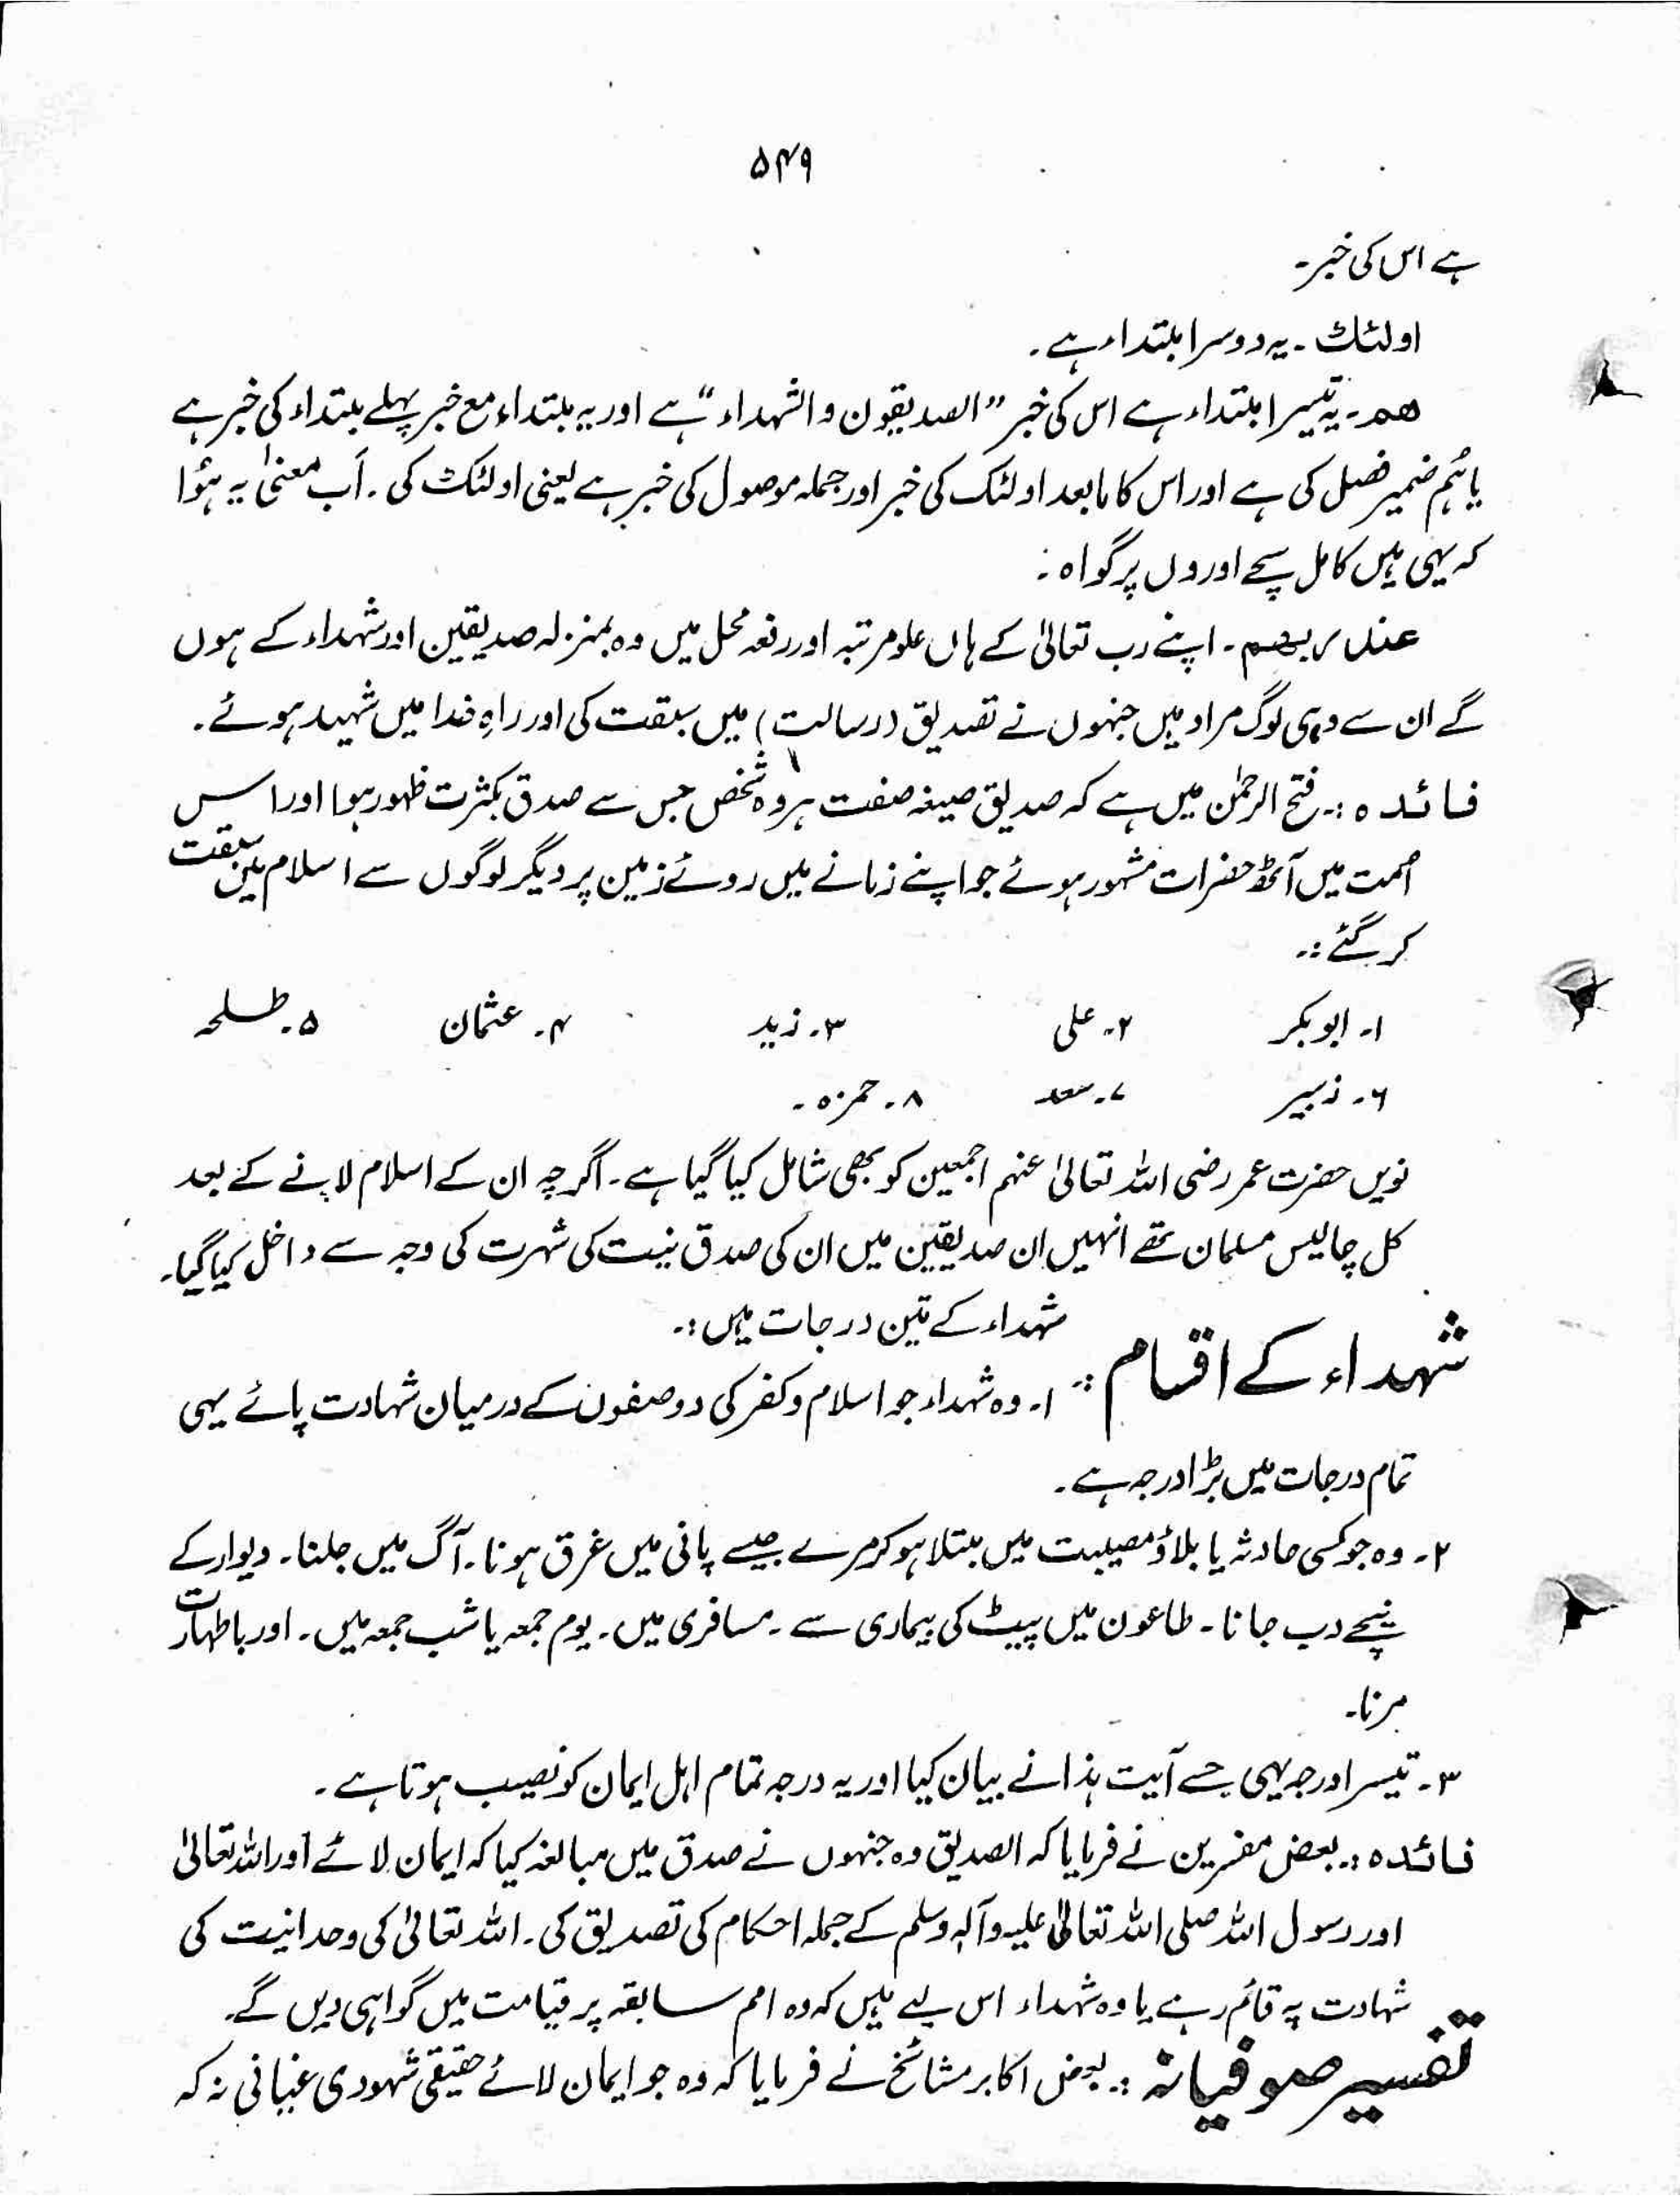 ۵۴۹
ہے اس کی خبر۔
اولئك ۔ یہ دوسرا مبتداء ہے۔
ھم ۔ یہ تیسرا مبتداء ہے اس کی خبر ”الصدیقون والشہداء“ ہے اور یہ مبتداء مع خبر پہلے مبتداء کی خبر ہے
یا ہُم ضمیر فصل کی ہے اور اس کا مابعد اولئک کی خبر اور جملہ موصول کی خبر ہے یعنی اولئک کی ۔ اَب معنیٰ یہ ہُوا
کہ یہی ہیں کامل سچے اوروں پر گواہ :
عند ربھم ۔ اپنے رب تعالیٰ کے ہاں علو مرتبہ اور رفعہ محل میں وہ بمنزلہ صدیقین اور شہداء کے ہوں
گے ان سے وہی لوگ مراد ہیں جنہوں نے تصدیق (رسالت) میں سبقت کی اور راہِ خدا میں شہید ہوئے۔
فائدہ :۔ فتح الرحمٰن میں ہے کہ صدیق صیغہ صفت ہر وہ شخص جس سے صدق بکثرت ظہور ہوا اور اس
اُمت میں آٹھ حضرات مشہور ہوئے جو اپنے زمانے میں روئے زمین پر دیگر لوگوں سے اسلام میں سبقت
کر گئے :۔
۱۔ ابوبکر ۲۔ علی ۳۔ زید ۴۔ عثمان ۵۔ طلحہ
۶۔ زبیر ۷۔ سعد ۸۔ حمزہ ۔
نویں حضرت عمر رضی اللہ تعالیٰ عنہم اجمعین کو بھی شامل کیا گیا ہے۔ اگرچہ ان کے اسلام لانے کے بعد
کل چالیس مسلمان تھے انہیں ان صدیقین میں ان کی صدق نیت کی شہرت کی وجہ سے داخل کیا گیا۔
شہداء کے اقسام :۔ شہداء کے تین درجات ہیں :۔
۱۔ وہ شہداء جو اسلام و کفر کی دو صفوں کے درمیان شہادت پائے یہی
تمام درجات میں بڑا درجہ ہے۔
۲۔ وہ جو کسی حادثہ یا بلاؤ مصیبت میں مبتلا ہو کر مرے جیسے پانی میں غرق ہونا۔ آگ میں جلنا۔ دیوار کے
نیچے دب جانا ۔ طاعون میں پیٹ کی بیماری سے ۔ مسافری میں ۔ یوم جمعہ یا شب جمعہ میں ۔ اور باطہارت
مرنا۔
۳۔ تیسرا درجہ یہی جسے آیت ہذا نے بیان کیا اور یہ درجہ تمام اہل ایمان کو نصیب ہوتا ہے ۔
فائدہ :۔ بعض مفسرین نے فرمایا کہ الصدیق وہ جنہوں نے صدق میں مبالغہ کیا کہ ایمان لائے اور اللہ تعالیٰ
اور رسول اللہ صلی اللہ تعالیٰ علیہ وآلہٖ وسلم کے جملہ احکام کی تصدیق کی ۔ اللہ تعالیٰ کی وحدانیت کی
شہادت پہ قائم رہے یا وہ شہداء اس لیے ہیں کہ وہ امم سابقہ پر قیامت میں گواہی دیں گے۔
تفسیر صوفیانہ :۔ بعض اکابر مشائخ نے فرمایا کہ وہ جو ایمان لائے حقیقی شہودی عیانی نہ کہ